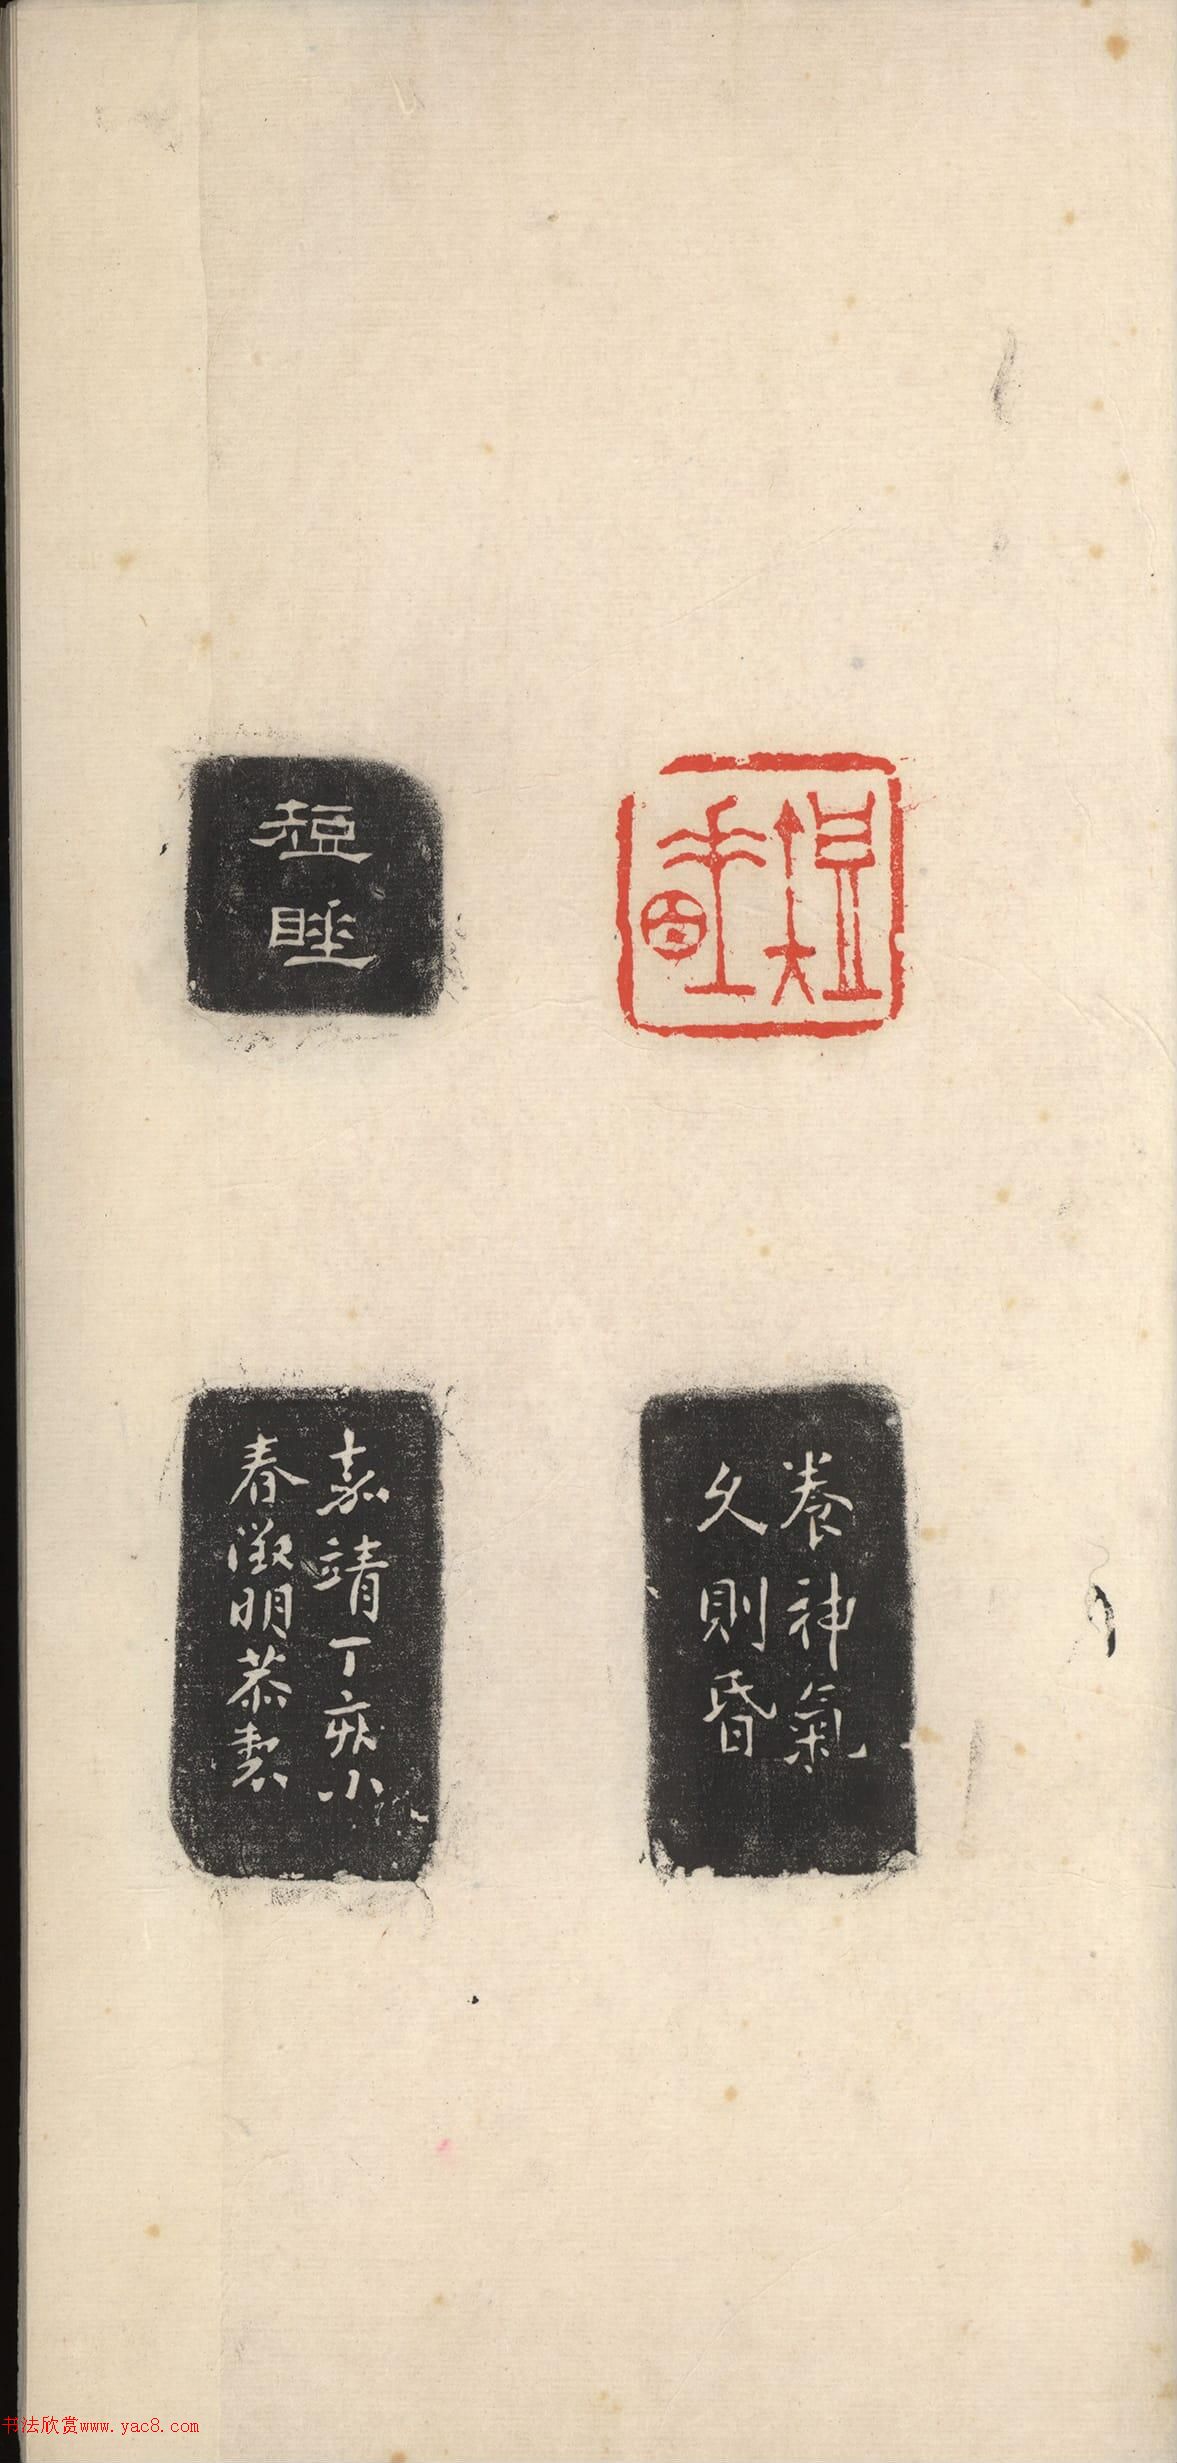 短睡
短睡
養神氣
久則昏
嘉靖丁亥小
春徵明恭製
书法欣赏www.yac8.com